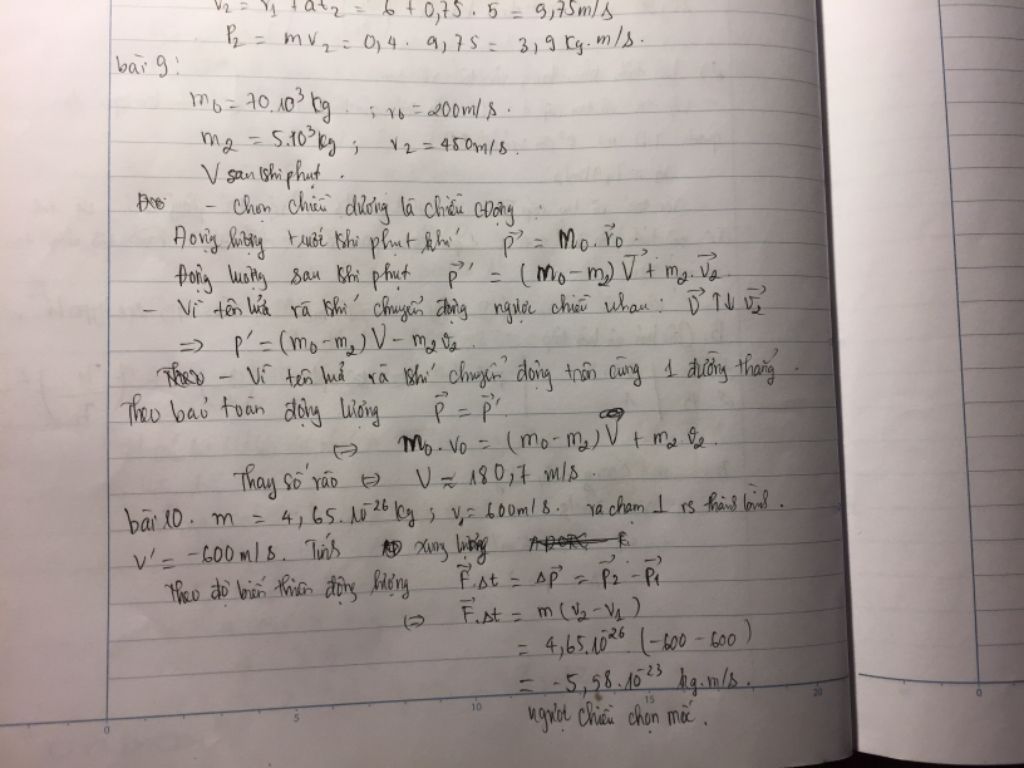 v₂ = v₁ + at₂ = 6 + 0,75 . 5 = 9,75 m/s
P₂ = mv₂ = 0,4 . 9,75 = 3,9 kg.m/s.
bài 9:
m₀ = 70.10³ kg ; v₀ = 200m/s.
m₂ = 5.10³ kg ; v₂ = 450m/s.
V sau khi phụt.
- Chọn chiều dương là chiều cđộng:
Động lượng trước khi phụt khí p⃗ = m₀.v⃗₀
Động lượng sau khi phụt p⃗' = (m₀ - m₂)V⃗ + m₂.v⃗₂
- Vì tên lửa và khí chuyển động ngược chiều nhau: v⃗ ↑↓ v⃗₂
⇒ p' = (m₀ - m₂)V - m₂v₂
- Vì tên lửa và khí chuyển động trên cùng 1 đường thẳng.
Theo bảo toàn động lượng p⃗ = p⃗'.
⇔ m₀.v₀ = (m₀ - m₂)V + m₂v₂.
Thay số vào ⇔ V ≈ 180,7 m/s.
bài 10. m = 4,65.10⁻²⁶ kg ; v₁ = 600m/s. va chạm 1 vs thành bình.
v' = -600 m/s. Tính xung lượng
Theo độ biến thiên động lượng F⃗.Δt = Δp⃗ = p⃗₂ - p⃗₁
⇔ F⃗.Δt = m(v₂ - v₁)
= 4,65.10⁻²⁶ (-600 - 600)
= -5,58.10⁻²³ kg.m/s.
ngược chiều chọn mốc.
0 5 10 15 20 0